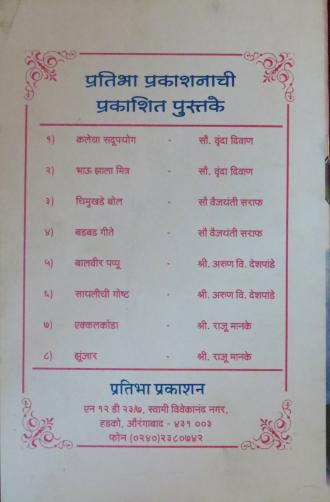 प्रतिभा प्रकाशनाची
प्रकाशित पुस्तके
१) कलेचा सदूपयोग - सौ. वृंदा दिवाण
२) भाऊ झाला मित्र - सौ. वृंदा दिवाण
३) चिमुखडे बोल - सौ वैजयंती सराफ
४) बडबड गीते - सौ वैजयंती सराफ
५) बालवीर पप्पू - श्री. अरुण वि. देशपांडे
६) सायलीची गोष्ट - श्री. अरुण वि. देशपांडे
७) एक्कलकोंडा - श्री. राजू मानके
८) झूंजार - श्री. राजू मानके
प्रतिभा प्रकाशन
एन १२ डी २३/७, स्वामी विवेकानंद नगर,
हडको, औरंगाबाद - ४३१ ००३
फोन (०२४०)२३८०७४२